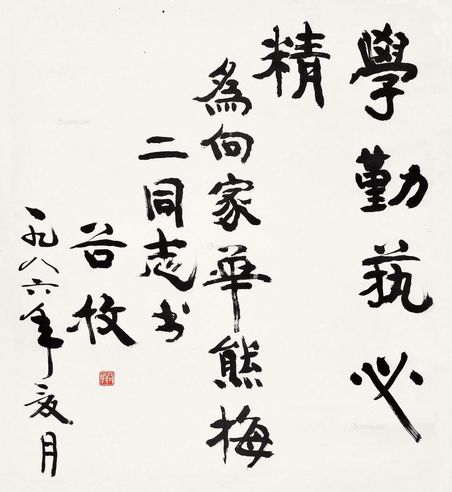 學勤執必
精
為向家華熊梅
二同志书
谷牧
一九八六年夏月